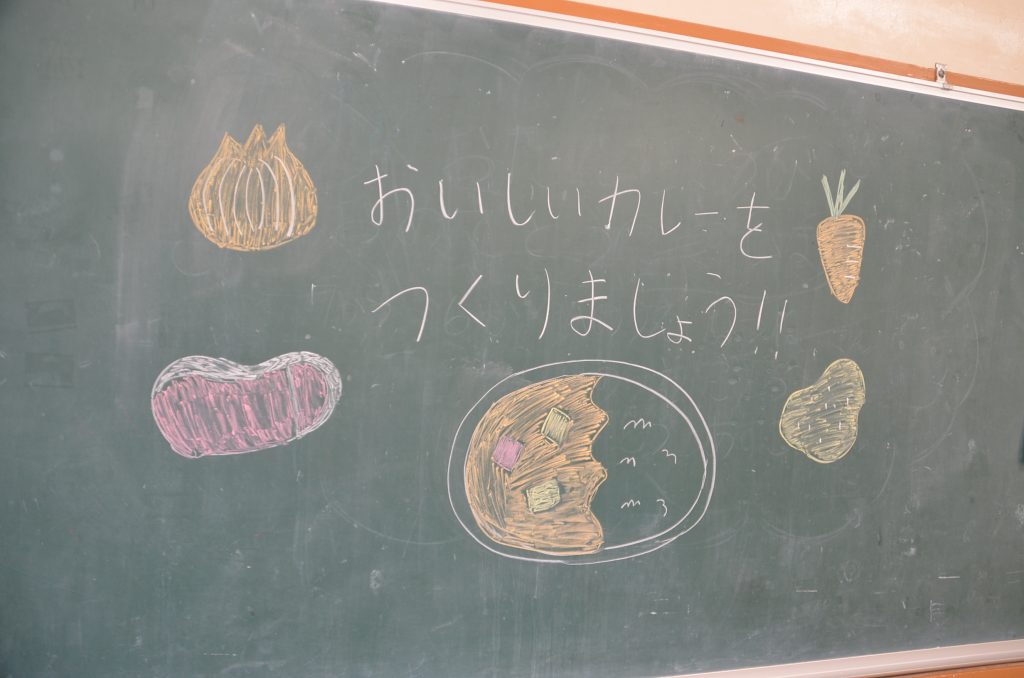 おいしいカレーを
つくりましょう!!